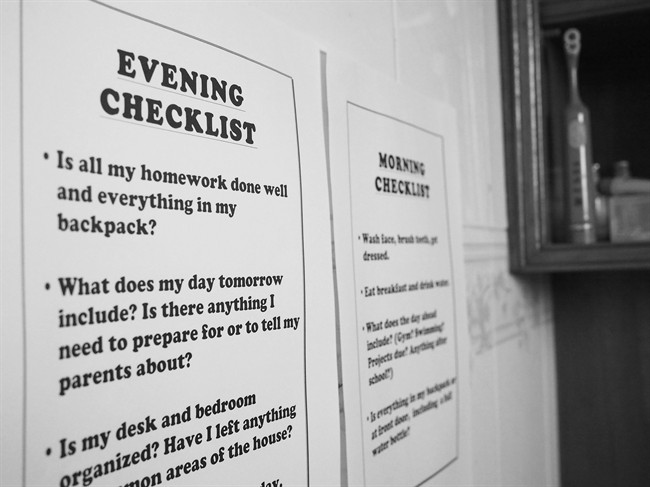 EVENING
CHECKLIST
• Is all my homework done well
and everything in my
backpack?
• What does my day tomorrow
include? Is there anything I
need to prepare for or to tell my
parents about?
• Is my desk and bedroom
organized? Have I left anything
mon areas of the house?
MORNING
CHECKLIST
• Wash face, brush teeth, get
dressed.
• Eat breakfast and drink water.
• What does the day ahead
include? (Gym? Swimming?
Projects due? Anything after
school?)
• Is everything in my backpack or
at front door, including a full
water bottle?